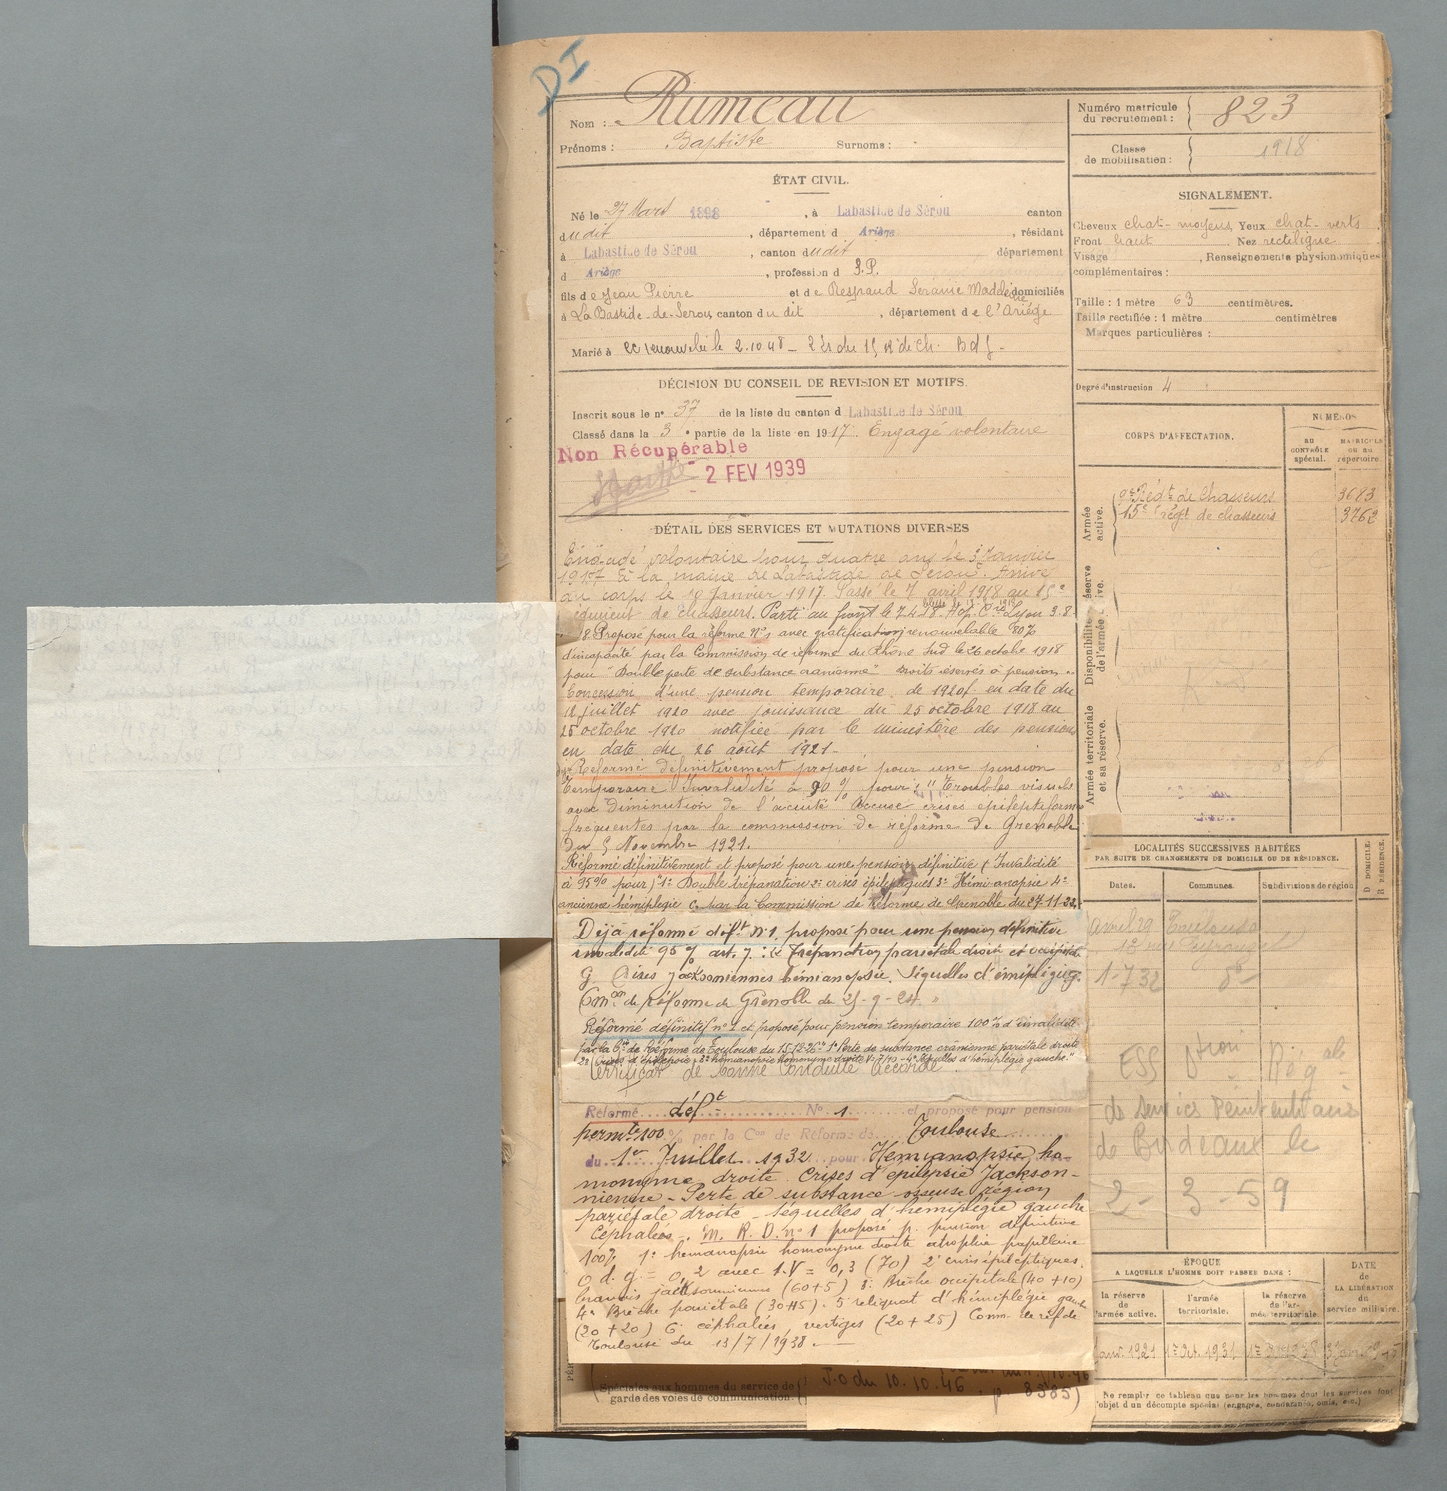 DI
Nom : Rumeau
Prénoms : Baptiste Surnoms :
Numéro matricule du recrutement : 823
Classe de mobilisation : 1918
ÉTAT CIVIL.
Né le 27 Mars 1898, à Labastide de Sérou canton
dudit, département d Ariège, résidant
à Labastide de Sérou, canton dudit département
d Ariège, profession d S.P.
fils de Jean Pierre et de Respaud Seranie Madeleine domiciliés
à La Bastide-de-Serou canton du dit, département de l'Ariège
Marié à
DÉCISION DU CONSEIL DE REVISION ET MOTIFS.
Inscrit sous le n° 37 de la liste du canton d Labastide de Sérou
Classé dans la 3e partie de la liste en 1917. Engagé volontaire
Non Récupérable
- 2 FEV 1939
DÉTAIL DES SERVICES ET MUTATIONS DIVERSES
Engagé volontaire pour quatre ans le 3 Janvier
1917 à la mairie de Labastide de Sérou. Arrivé
au corps le 18 Janvier 1917. Passé le 7 avril 1918 au 15e
régiment de chasseurs. Parti au front le 7.4.18. Lyon 3.8.
18. Proposé pour la réforme N°1 avec gratification renouvelable 80%
d'incapacité par la Commission de réforme du Rhône Sud le 26 octobre 1918
pour "Double perte de substance cranienne" droits réservés à pension.
Concession d'une pension temporaire de 1920f en date du
12 juillet 1920 avec jouissance du 25 octobre 1918 au
25 octobre 1920 notifiée par le ministère des pensions
en date du 26 août 1921.
Réformé définitivement proposé pour une pension
temporaire Invalidité à 90% pour : "Troubles visuels
avec diminution de l'acuité accuse crises épileptiformes
fréquentes par la commission de réforme de Grenoble
du 5 Novembre 1921.
Réformé définitivement et proposé pour une pension définitive (Invalidité
à 95% pour) "1° Double trépanation 2° crises épileptiques 3° Hémianopsie 4°
ancienne hémiplégie G. par la Commission de Réforme de Grenoble du 27-11-22.
Déjà réformé déft. n°1, proposé pour une pension définitive
invalidité 95% art. 7 : Trépanation pariétale droite et occipitale
G. Crises jacksoniennes hémianopsie. Séquelles d'émiplégie g.
Comon de Réforme de Grenoble du 25-9-24.
Réformé définitif n°1 et proposé pour pension temporaire 100% d'invalidité
par la Con de Réforme de Toulouse du 15-12-26 "1° Perte de substance crânienne pariétale droite
2° Crises d'épilepsie 3° hémianopsie homonyme droite V=7/10 - 4° Séquelles d'hémiplégie gauche."
Certificat de bonne conduite Accordé
Réformé déft N° 1 et proposé pour pension
permte 100% par la Con de Réforme de Toulouse
du 1er Juillet 1932 pour Hémianopsie ho-
monyme droite. Crises d'épilepsie Jackson-
nienne - Perte de substance osseuse région
pariétale droite - Séquelles d'hémiplégie gauche
Céphalées. M. R. D. n°1 proposé p. pension définitive
100% 1° hémianopsie homonyme droite atrophie papillaire
O d. g = 0,2 avec 1.V = 0,3 (70) 2° crises épileptiques.
Bravais jacksonniennes (60+5) 3° Brèche occipitale (40+10)
4° Brèche pariétale (30+15). 5 reliquat d'hémiplégie gauche
(20+20) 6° céphalées, vertiges (20+25) Comm. de réf de
Toulouse du 13/7/1938.
Spéciales aux hommes du service de garde des voies de communication.
J.O du 10.10.46
p. 8585)
SIGNALEMENT.
Cheveux chat-moyens Yeux chat-verts
Front haut Nez rectiligne
Visage , Renseignements physionomiques
complémentaires :
Taille : 1 mètre 63 centimètres.
Taille rectifiée : 1 mètre centimètres
Marques particulières :
Degré d'instruction 4
CORPS D'AFFECTATION.
NUMÉROS
AU CONTRÔLE spécial.
MATRICULE OU AU répertoire.
Armée active.
9e Régt de Chasseurs 3693
15e régt de chasseurs 3762
Disponibilité et réserve de l'armée active.
Armée territoriale et sa réserve.
LOCALITÉS SUCCESSIVES HABITÉES
PAR SUITE DE CHANGEMENTS DE DOMICILE OU DE RÉSIDENCE.
Dates. Communes. Subdivisions de région D DOMICILE. R RÉSIDENCE.
Avril 29 Toulouse
1-7 32 do
de Services Pénitentiaires
de Bordeaux le
2 - 3 - 59
ÉPOQUE
A LAQUELLE L'HOMME DOIT PASSER DANS :
la réserve de l'armée active.
l'armée territoriale.
la réserve de l'armée territoriale.
DATE de LA LIBÉRATION du service militaire.
Janv. 1921 1er Oct. 1931
Ne remplir ce tableau que pour les hommes dont les services font l'objet d'un décompte spécial (engagés, condamnés, omis, etc.)